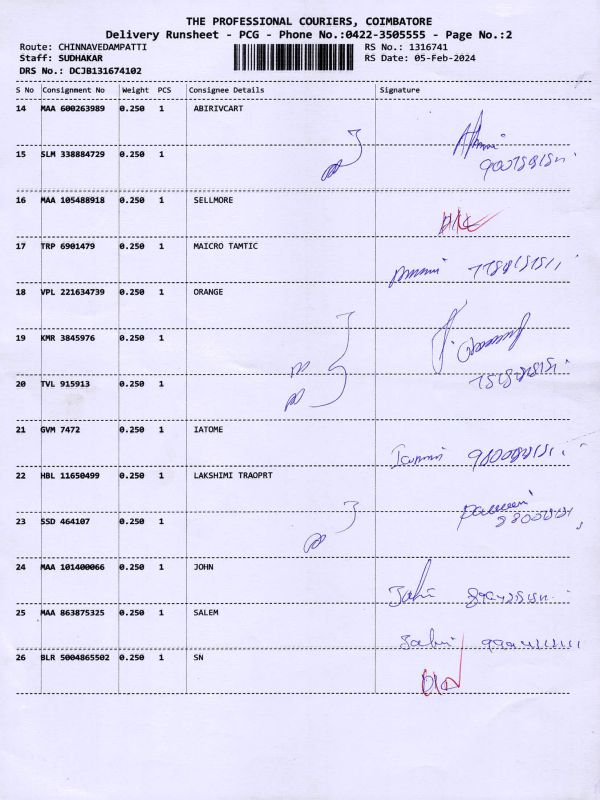 THE PROFESSIONAL COURIERS, COIMBATORE
Delivery Runsheet - PCG - Phone No.:0422-3505555 - Page No.:2
Route: CHINNAVEDAMPATTI RS No.: 1316741
Staff: SUDHAKAR RS Date: 05-Feb-2024
DRS No.: DCJB131674102
S No Consignment No Weight PCS Consignee Details Signature
14 MAA 600263989 0.250 1 ABIRIVCART
15 SLM 338884729 0.250 1
16 MAA 105488918 0.250 1 SELLMORE
17 TRP 6901479 0.250 1 MAICRO TAMTIC
18 VPL 221634739 0.250 1 ORANGE
19 KMR 3845976 0.250 1
20 TVL 915913 0.250 1
21 GVM 7472 0.250 1 IATOME
22 HBL 11650499 0.250 1 LAKSHIMI TRAOPRT
23 SSD 464107 0.250 1
24 MAA 101400066 0.250 1 JOHN
25 MAA 863875325 0.250 1 SALEM
26 BLR 5004865502 0.250 1 SN